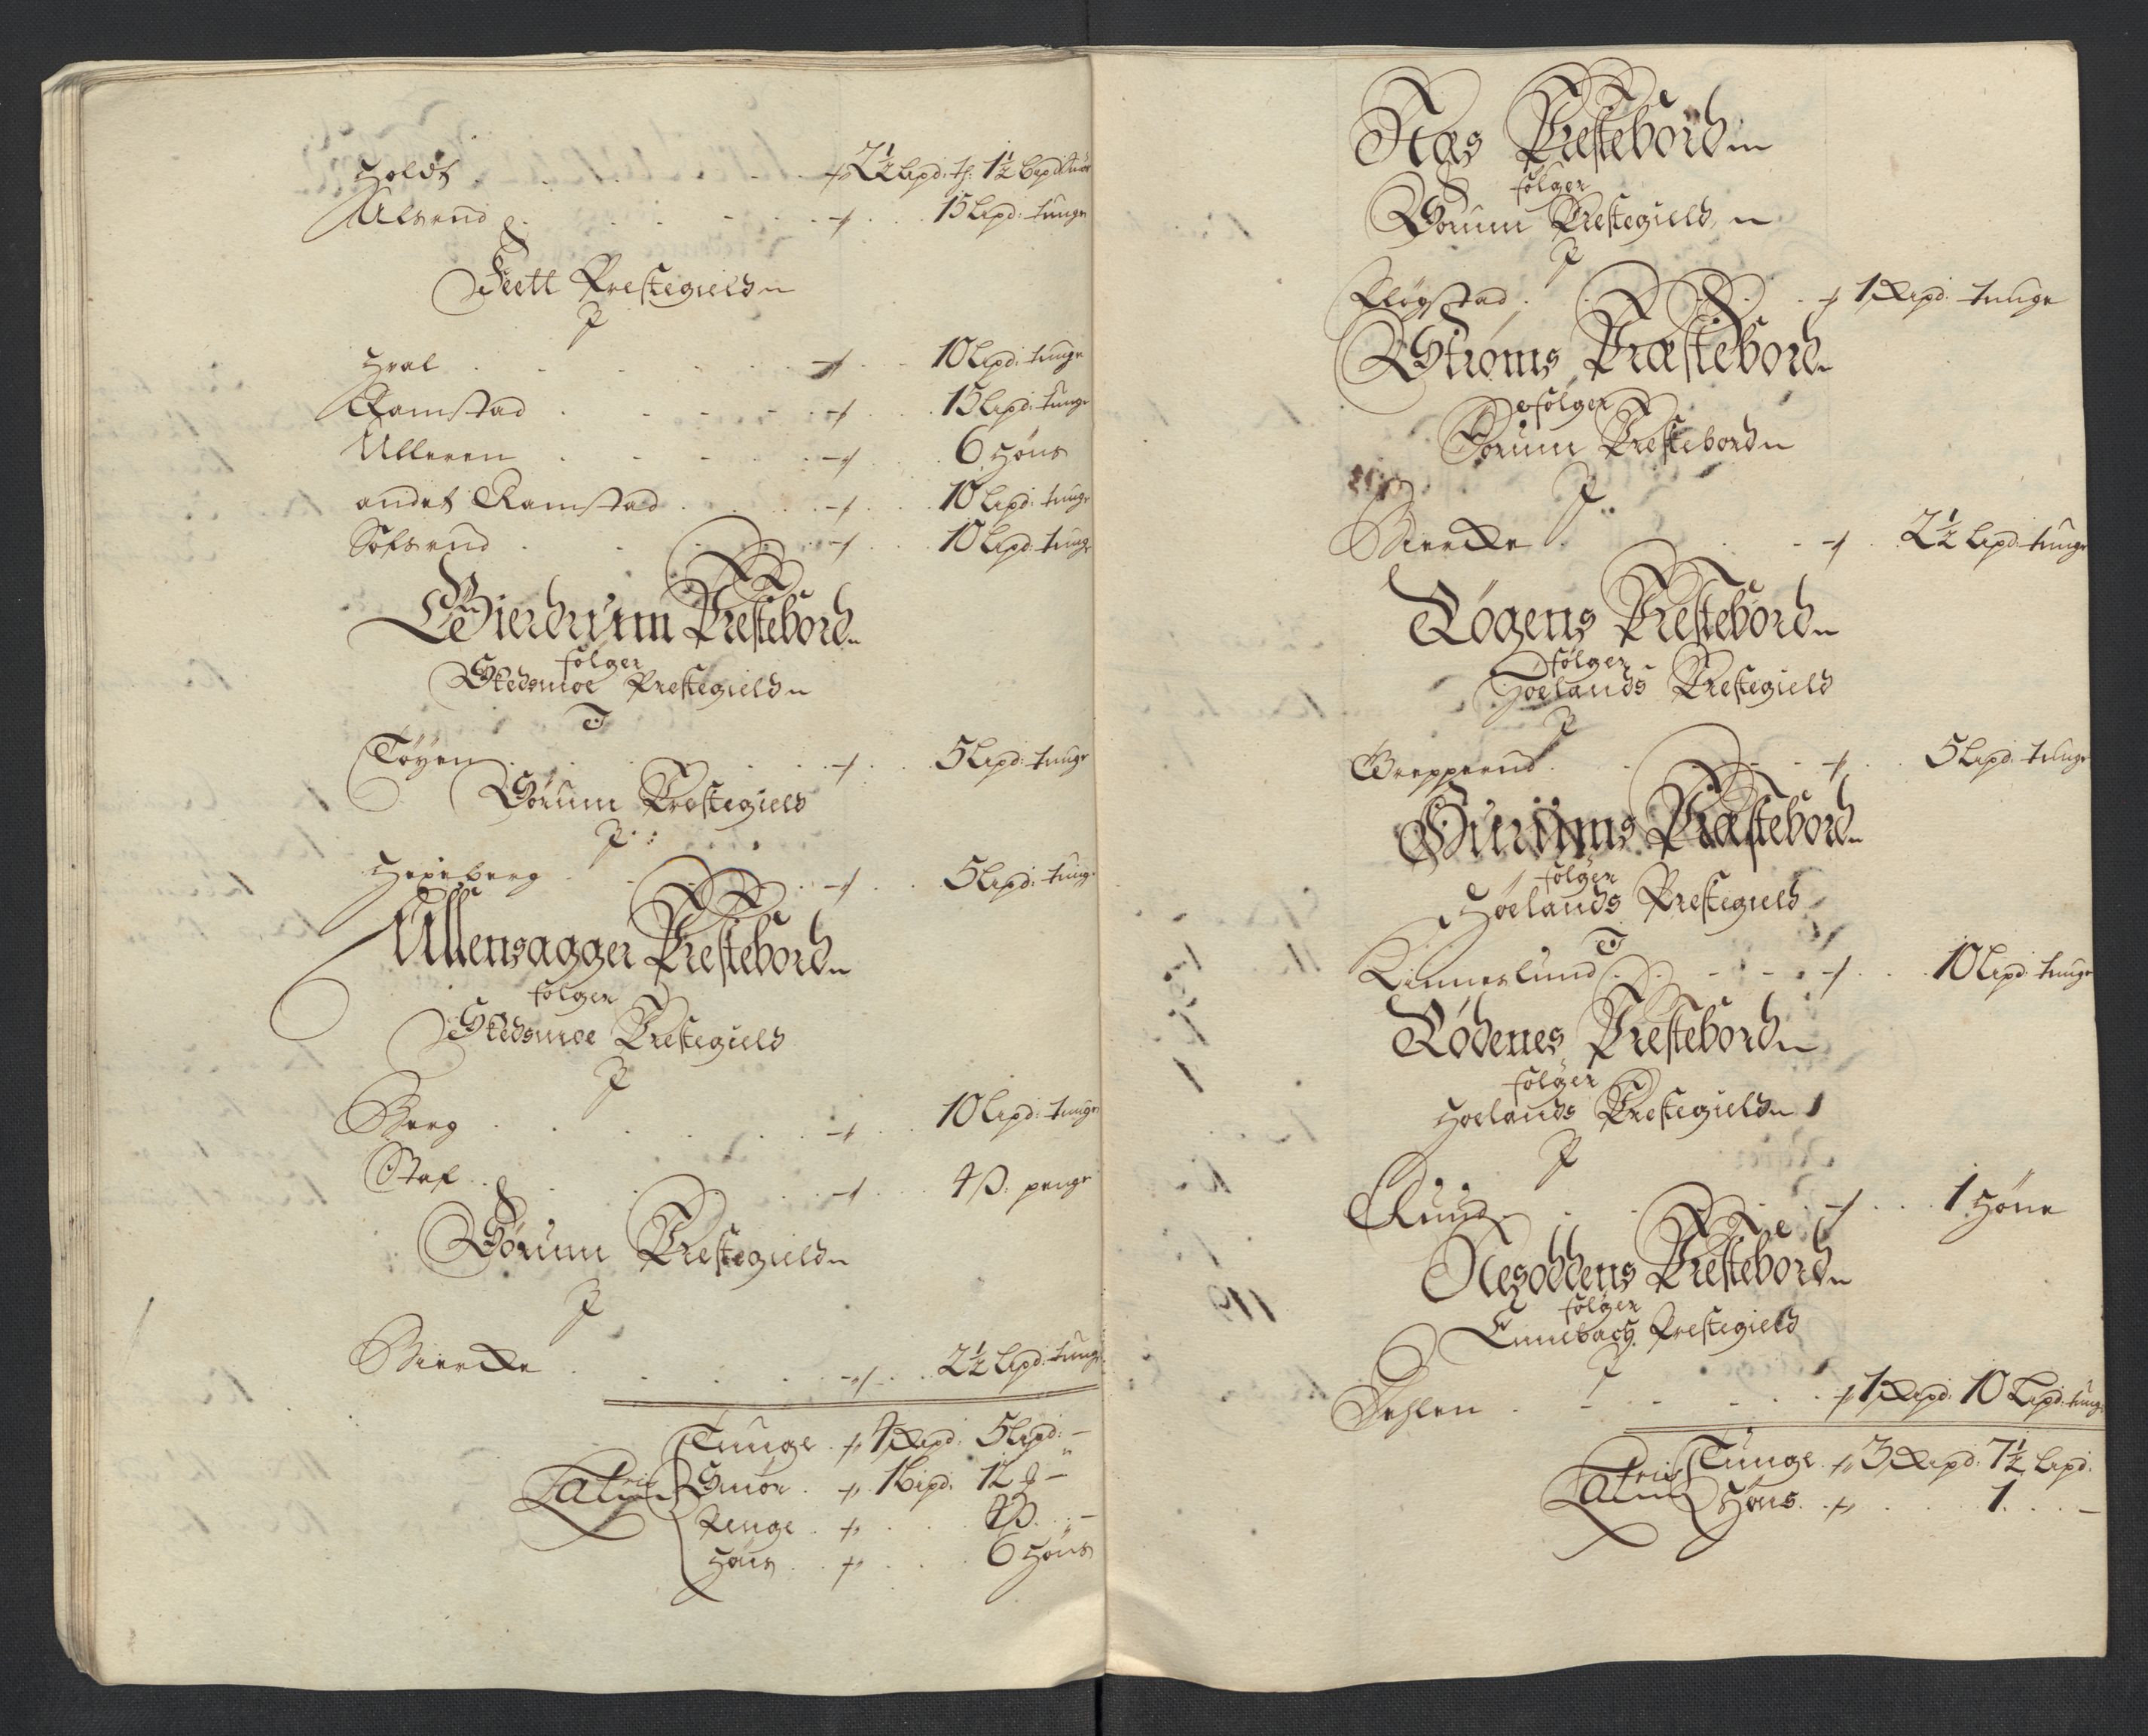 Holdt . . . . . . 2½ Lispd: t: 1½ Bispd smør
Ulsrud . . . . . . 15 Lispd: tunge
Feett Prestegield
J
Hval . . . . . . 10 Lispd: tunge
Ramstad . . . . . . 15 Lispd: tunge
Ulleren . . . . . . 6 Høns
andet Ramstad . . . . 10 Lispd: tunge
Tofsrud . . . . . . 10 Lispd: tunge
Gierdrum Prestebord
følger
Skedsmoe Prestegield
J
Tøyen . . . . . . 5 Lispd: tunge
Sørum Prestegield
J
Hexeberg . . . . . . 5 Lispd: tunge
Ullensagger Prestebord
følger
Skedsmoe Prestegield
J
Berg . . . . . . 10 Lispd: tunge
Staf . . . . . . 4 ß: penge
Sørum Prestegield
J
Biercke . . . . . . 2½ Lispd: tunge
Tunge . 4 Skpd: 5 Lispd: –
Latris Smør . 1 Bispd: 12 –
Penge . . . . 4 ß . –
Høns . . . . 6 Høns
Næs Prestebord
følger
Sørum Prestegield
J
Fløgstad . . . . . 1 Skpd: tunge
Strøms Præstebord
følger
Sørum Prestebord
J
Biercke . . . . . . 2½ Lispd: tunge
Røgens Prestebord
følger
Høelands Prestegield
J
Grepperud . . . . . . 5 Lispd: tunge
Præstebord
følger
Høelands Prestegield
J
Kinnerlund . . . . . 10 Lispd: tunge
Rødenes Prestebord
følger
Hoelands Prestegield
J
Ruud . . . . . . 1 Høne
Nesoddens Prestebord
følger
Ennebach Prestegield
J
Dahlen . . . . . 1 Skpd: 10 Lispd: tunge
Latris Tunge . 3 Skpd: 7½ Lispd:
Høns . . . . 1 . . –